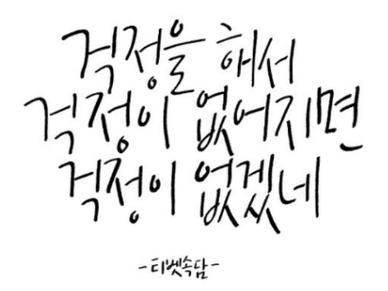 걱정을 해서
걱정이 없어지면
걱정이 없겠네
-티벳속담-